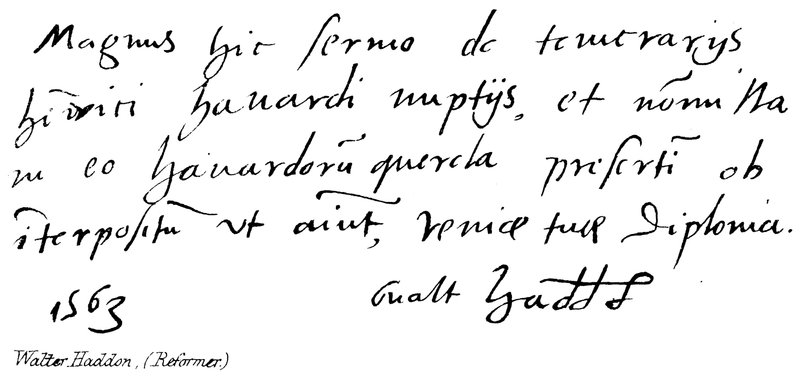 Magnus hic sermo de temerarijs
hērici hauardi nuptijs, et nōnulla
in eo hauardorū querela presertī ob
īterpositū vt aiūt, veniæ tuæ diploma.
1563 Gualt hadd
Walter Haddon, (Reformer.)